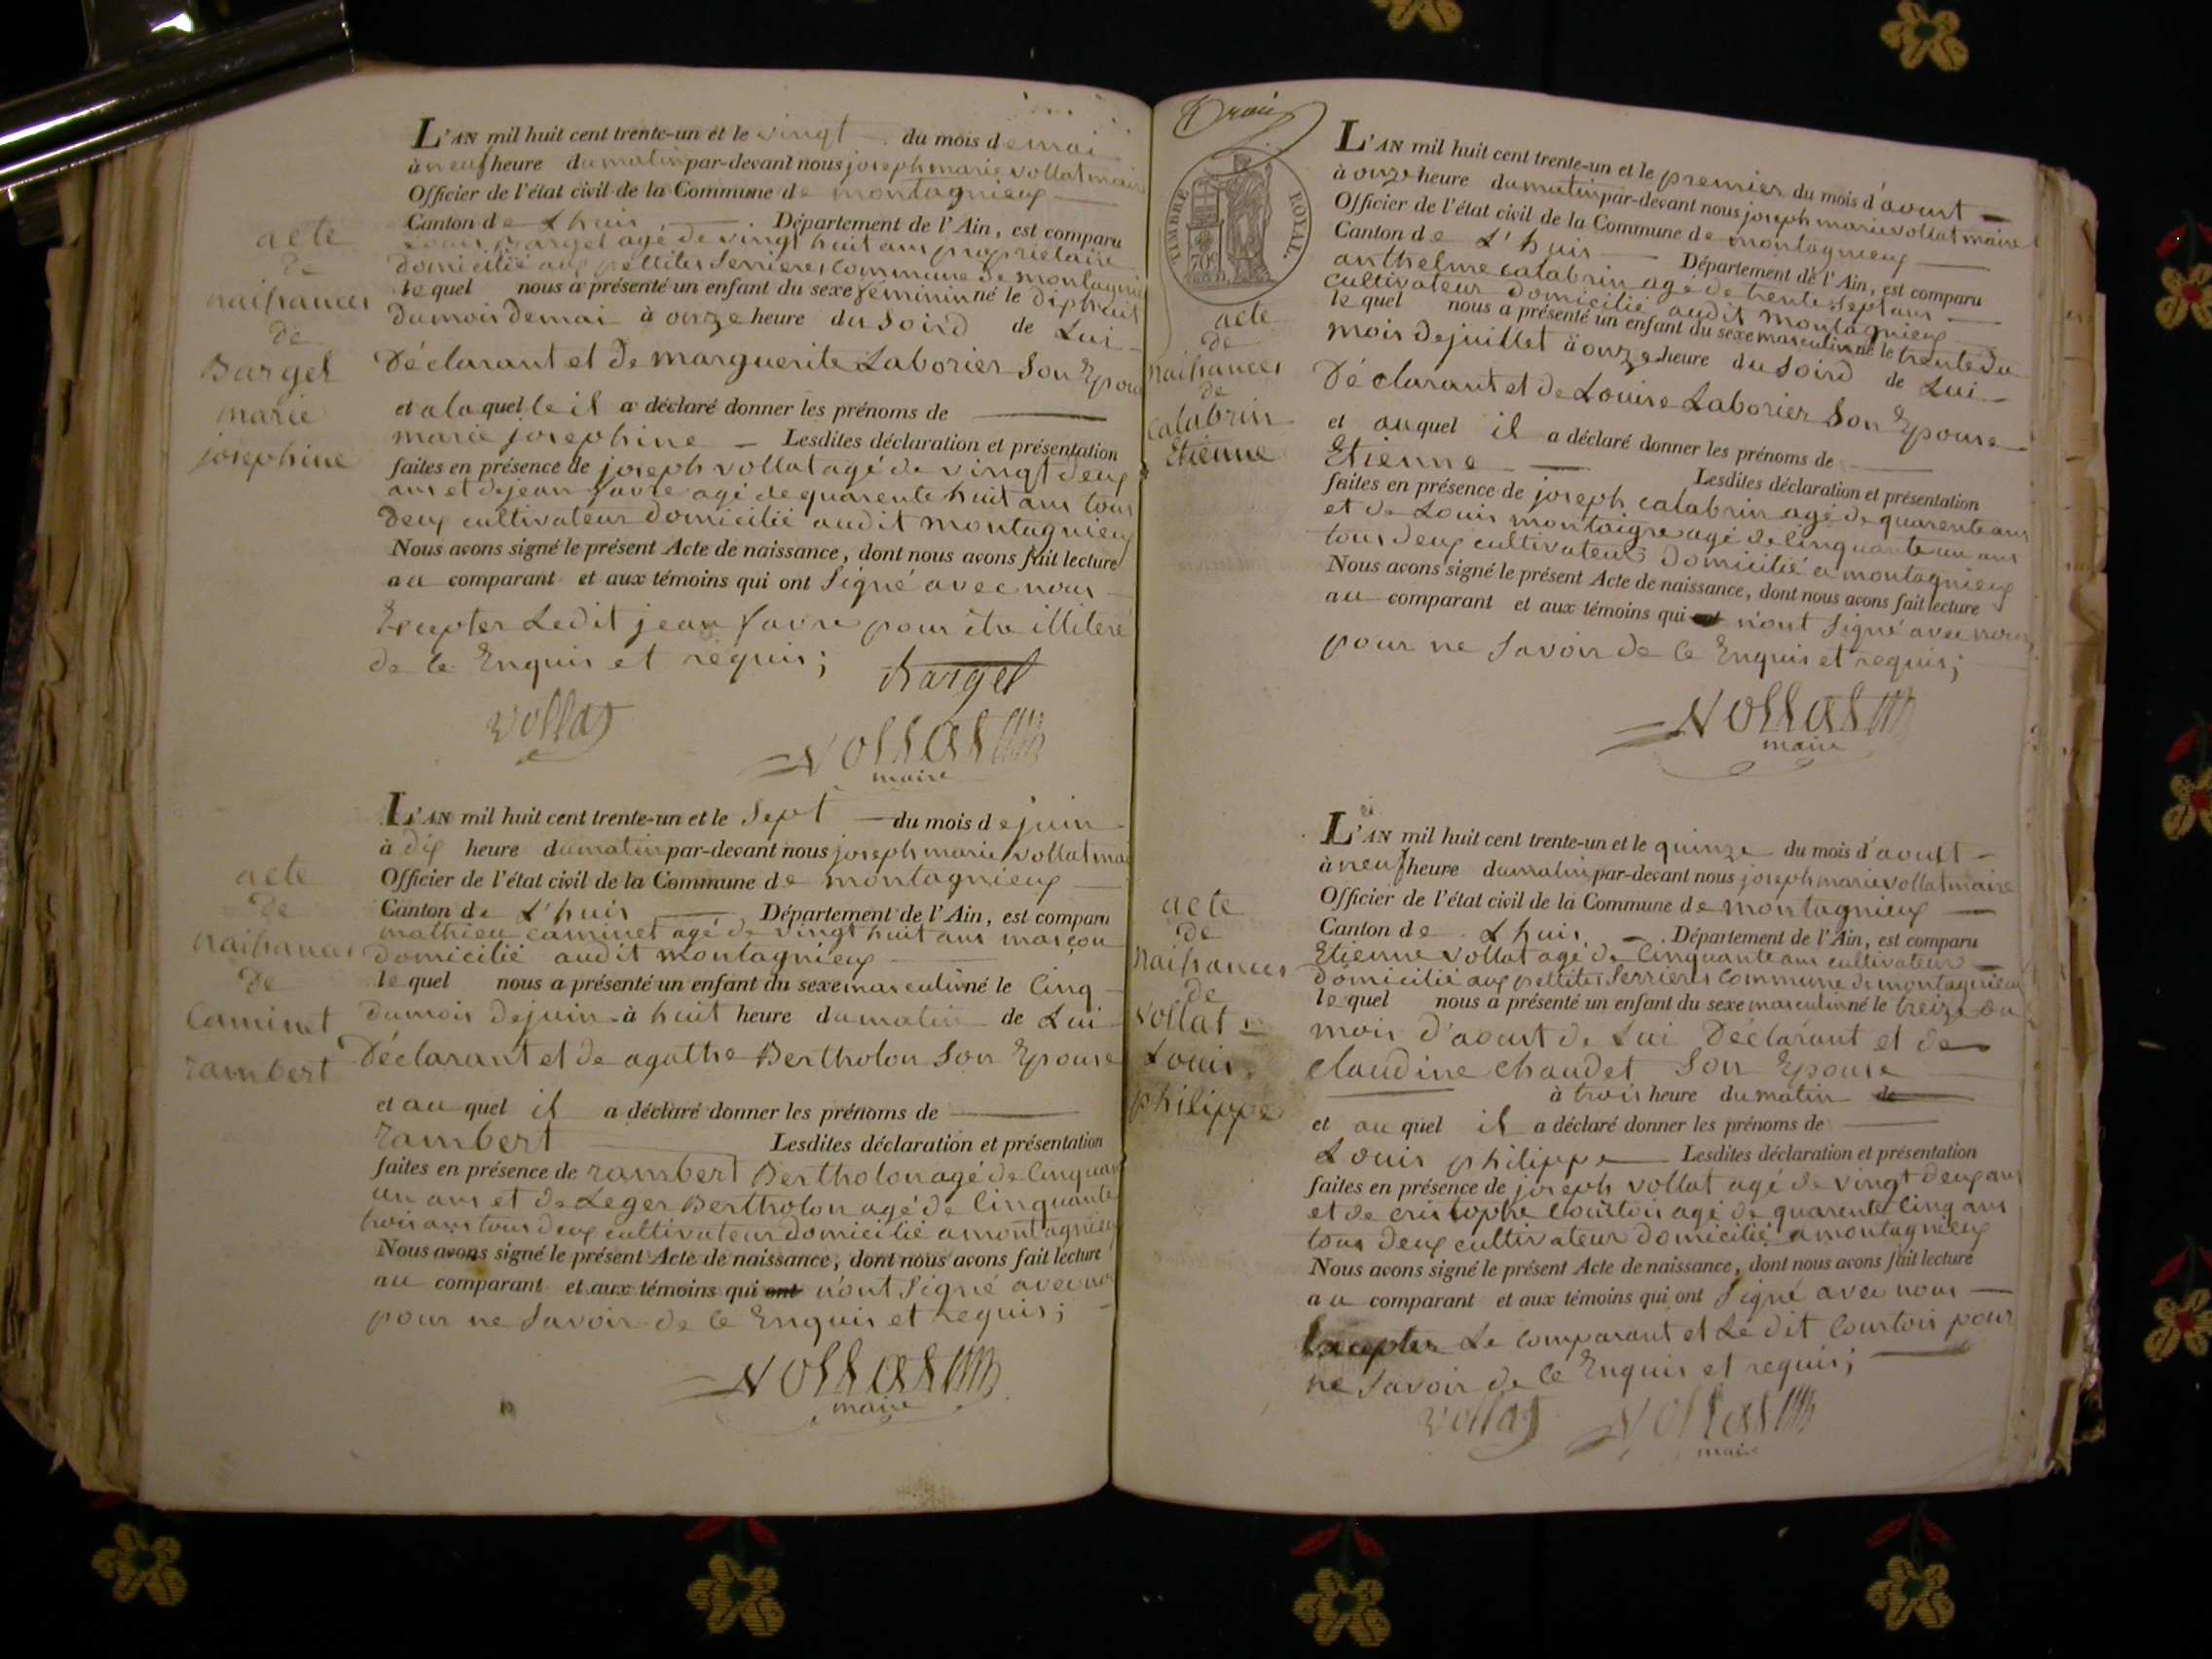 acte
de
naissances
de
Bargel
marie
josephine
L'AN mil huit cent trente-un et le vingt du mois de mai
à neuf heure du matin par-devant nous joseph marie vollat maire
Officier de l'état civil de la Commune de montagnieux
Canton de Lhuis Département de l'Ain, est comparu
Louis Bargel agé de vingt huit ans proprietaire
domicilié aux pettites serrieres commune de montagnieu
le quel nous a présenté un enfant du sexe feminin né le dix huit
du mois de mai à onze heure du soird de Lui
Déclarant et de marguerite Laborier son Epouse
et a la quelle il a déclaré donner les prénoms de
marie josephine Lesdites déclaration et présentation
faites en présence de joseph vollat agé de vingt deux
ans et de jean favre agé de quarente huit ans tous
deux cultivateur domicilié audit montagnieux
Nous avons signé le présent Acte de naissance, dont nous avons fait lecture
au comparant et aux témoins qui ont signé avec nous
Excepter Ledit jean favre pour être illiteré
de ce Enquis et requis;
Bargel
vollat
vollat
maire
acte
de
naissances
de
Caminet
rambert
L'AN mil huit cent trente-un et le sept du mois de juin
à dix heure du matin par-devant nous joseph marie vollat mai
Officier de l'état civil de la Commune de montagnieux
Canton de L'huis Département de l'Ain, est comparu
mathieu caminet agé de vingt huit ans masçon
domicilié audit montagnieux
le quel nous a présenté un enfant du sexe masculin né le cinq
du mois de juin à huit heure du matin de Lui
Déclarant et de agathe Bertholon son Epouse
et au quel il a déclaré donner les prénoms de
rambert Lesdites déclaration et présentation
faites en présence de rambert Bertholon agé de cinquan
un ans et de Leger Bertholon agé de cinquante
trois ans tous deux cultivateur domicilié a montagnieu
Nous avons signé le présent Acte de naissance, dont nous avons fait lecture
au comparant et aux témoins qui ont n'ont signé avec no
pour ne savoir de ce Enquis et requis;
vollat
maire
TIMBRE ROYAL.
70c
acte
de
naissances
de
calabrin
Etienne
L'AN mil huit cent trente-un et le premier du mois d'avout
à onze heure du matin par-devant nous joseph marie vollat maire
Officier de l'état civil de la Commune de montagnieux
Canton de L'huis Département de l'Ain, est comparu
anthelme calabrin agé de trente sept ans
cultivateur domicilié audit montagnieux
le quel nous a présenté un enfant du sexe masculin né le trente du
mois de juillet à onze heure du soird de Lui
Déclarant et de Louise Laborier son Epouse
et au quel il a déclaré donner les prénoms de
Etienne Lesdites déclaration et présentation
faites en présence de joseph calabrin agé de quarente ans
et de Louis montaigre agé de cinquante un ans
tous deux cultivateurs domicilié a montagnieux
Nous avons signé le présent Acte de naissance, dont nous avons fait lecture
au comparant et aux témoins qui ont n'ont signé avec nous
pour ne savoir de ce Enquis et requis;
vollat
maire
acte
de
naissances
de
vollat
Louis
philippe
L'AN mil huit cent trente-un et le quinze du mois d'avoust
à neuf heure du matin par-devant nous joseph marie vollat maire
Officier de l'état civil de la Commune de montagnieux
Canton de Lhuis Département de l'Ain, est comparu
Etienne vollat agé de cinquante ans cultivateur
domicilié aux pettites serrieres commune de montagnieux
le quel nous a présenté un enfant du sexe masculin né le treize du
mois d'avout de Lui Déclarant et de
claudine chaudet son Epouse
à trois heure du matin de
et au quel il a déclaré donner les prénoms de
Louis philippe Lesdites déclaration et présentation
faites en présence de joseph vollat agé de vingt deux ans
et de cristophe courtois agé de quarente cinq ans
tous deux cultivateur domicilié a montagnieux
Nous avons signé le présent Acte de naissance, dont nous avons fait lecture
au comparant et aux témoins qui ont signé avec nous
Excepter Le comparant et Le dit courtois pour
ne savoir de ce Enquis et requis;
vollat vollat
maire